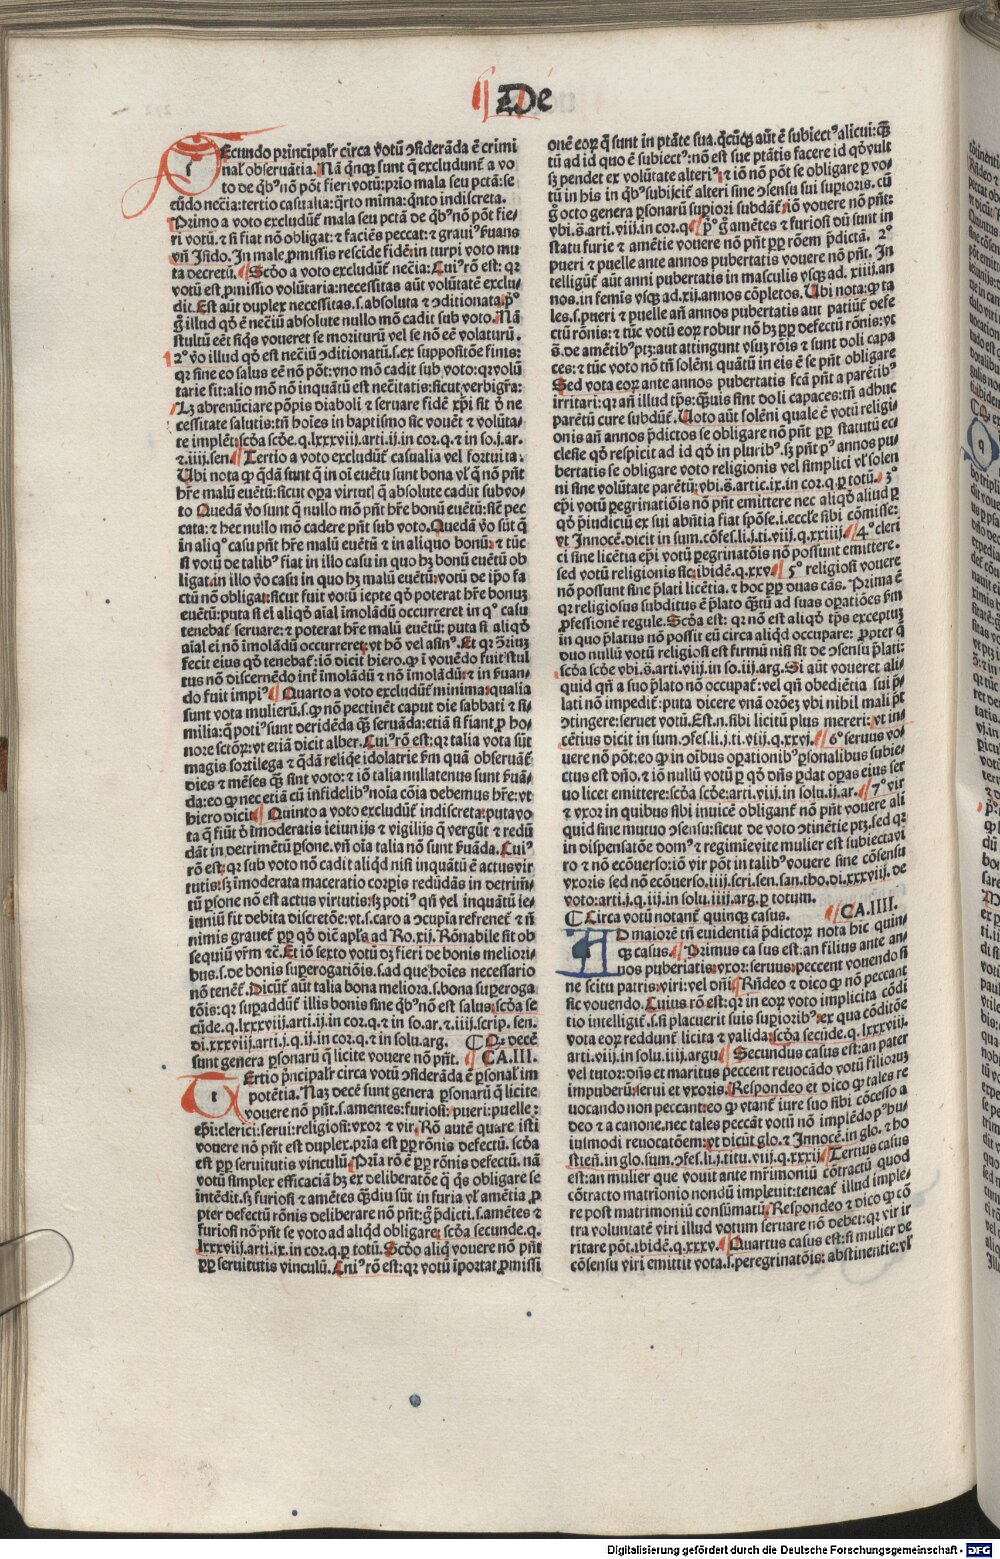 De
Ecundo principalr̄ circa votū ↄsiderāda ē crimi
nal' obseruātia. Nā qn̄qꝫ sunt q̄ excludunt᷑ a vo
to de qb᷒ nō pōt fieri votū: prio mala seu pctā: se
cūdo necīa: tertio casualia: q̄rto mima: qn̄to indiscreta.
Primo a voto excludūt᷑ mala seu pctā de qb᷒ nō pōt fie/
ri votū. ⁊ si fiat nō obligat: ⁊ faciēs peccat: ⁊ graui᷒ ẜuans
vn̄ Isido. In male ꝓmissis rescide fidē: in turpi voto mu
ta decretū. Scḋo a voto excludūt᷑ necīa: Cui᷒ rō est: qꝛ
votū est ꝓmissio volūtaria: necessitas aūt volūtatē exclu/
dit. Est aūt duplex necessitas. s. absoluta ⁊ ↄditionata. p̊
g̊ illud qḋ ē neciū absolute nullo mō cadit sub voto. Nā
stultū eēt siqs voueret se moriturū vel se nō eē volaturū.
2° ṽo illud qḋ est neciū ↄditionatū. s. ex suppositōe finis:
qꝛ sine eo salus eē nō pōt: vno mō cadit sub voto: qꝛ volū
tarie sit: alio mō nō inquātū est necītatis: sicut verbigr̄a:
Lꝫ abrenūciare pōpis diaboli ⁊ seruare fidē xp̄i sit ḋ ne
cessitate salutis: tn̄ hoīes in baptismo sic vouēt ⁊ volūta/
te implēt: scḋa scḋe. q. lxxxviij. arti. ij. in coꝛ. q. ⁊ in so. j. ar.
⁊ iiij. sen. Tertio a voto excludūt᷑ casualia vel fortuita.
Ubi nota ꝙ q̄dā sunt q̄ in oī euētu sunt bona vl̓ q̄ nō pn̄t
hr̄e malū euētū: sicut oꝑa virtut̄ q̄ absolute cadūt sub vo/
to Quedā ṽo sunt q̄ nullo mō pn̄t hr̄e bonū euētū: sic̄ pec
cata: ⁊ hec nullo mō cadere pn̄t sub voto. Quedā ṽo sūt q̄
in aliq° casu pn̄t hr̄e malū euētū ⁊ in aliquo bonū: ⁊ tūc
si votū de talib᷒ fiat in illo casu in quo hꝫ bonū euētū ob
ligat. in illo ṽo casu in quo hꝫ malū euētū: votū de ip̄o fa
ctū nō obligat: sicut fuit votū iepte qḋ poterat hr̄e bonuꝫ
euētū: puta si ei aliqḋ aīal īmolādū occurreret in q° casu
tenebat᷑ seruare: ⁊ poterat hr̄e malū euētū: puta si aliqḋ
aīal ei nō īmolādū occurreret: vt hō vel asin᷒. Et qꝛ ↄ̄riuꝫ
fecit eius qḋ tenebat᷑: iō dicit hiero. ꝙ ī vouēdo fuit stul
tus nō discernēdo int᷑ īmolādū ⁊ nō īmolādū: ⁊ in ẜuan/
do fuit impi᷒. Quarto a voto excludūt᷑ minima: qualia
sunt vota mulierū. s. ꝙ nō pectinēt caput die sabbati ⁊ si/
milia: q̄ poti᷒ sunt deridēda qꝫ̄ seruāda: etiā si fiant ꝑ ho/
nore sctōꝝ: vt etiā dicit alber. Cui᷒ rō est: qꝛ talia vota sūt
magis sortilega ⁊ q̄dā reliqe idolatrie ẜm quā obseruāt᷑
dies ⁊ mēses qꝫ̄ sint voto: ⁊ iō talia nullatenus sunt ẜuā/
da: eo ꝙ nec etiā cū infidelib᷒ noīa cōia debemus hr̄e: vt
hiero dicit. Quinto a voto excludūt᷑ indiscreta: puta vo
ta q̄ fiūt ḋ īmoderatis ieiunijs ⁊ vigilijs q̄ vergūt ⁊ redū
dāt in detrimētū ꝑsone. vn̄ oīa talia nō sunt ẜuāda. Cui᷒
rō est: qꝛ sub voto nō cadit aliqd nisi inquātū ē actus vir
tutis: sꝫ īmoderata maceratio coꝛꝑis redūdās in detrim̄/
tū ꝑsone nō est actus virtutis: sꝫ poti᷒ qn̄ vel inquātū ie/
iuniū fit debita discretōe: vt. s. caro a ↄcupīa refrenet᷑ ⁊ n̄
nimis grauet᷑ ꝓp̱ qḋ dic̄ apl̓s ad Ro. xij. Rōnabile sit ob
sequiū vr̄m ⁊c̄. Et iō sexto votū dꝫ fieri de bonis meliori/
bus. s. de bonis suꝑerogatiōis. s. ad que hoīes necessario
nō tenēt᷑. Dicūt᷑ aūt talia bona melioꝛa. s. bona suꝑeroga
tōis: qꝛ suꝑaddūt᷑ illis bonis sine qb᷒ nō est salus, scḋa se
cūde. q. lxxxviij. arti. ij. in coꝛ. q. ⁊ in so. ar. ⁊ iiij. scrip. sen.
di. xxxviij. arti. j. q. ij. in coꝛ. q. ⁊ in solu. arg. ¶ Q̄ decē
sunt genera ꝑsonarū q̄ licite vouere nō pn̄t. CA. III.
Ertio p̄ncipalr̄ circa votū ↄsiderāda ē ꝑsonal' im
potētia. Naꝫ decē sunt genera ꝑsonarū q̄ licite
vouere nō pn̄t. s. amentes: furiosi: pueri: puelle:
ep̄i: clerici: serui: religiosi: vxoꝛ ⁊ vir. Rō autē quare isti
vouere nō pn̄t est duplex. pria est ꝓp̱ rōnis defectū. scḋa
est ꝓp̱ seruitutis vinculū. Pria rō ē ꝓp̱ rōnis defectū. nā
votū simplex efficaciā hꝫ ex deliberatōe q̄ qs obligare se
intēdit. sꝫ furiosi ⁊ amētes qꝫ̄diu sūt in furia vl̓ amētia ꝓ
pter defectū rōnis deliberare nō pn̄t: g̊ p̄dicti. s. amētes ⁊
furiosi nō pn̄t se voto ad aliqd obligare: scḋa secunde. q.
lxxxviij. arti. ix. in coꝛ. q. ꝑ totū. Scḋo aliq vouere nō pn̄t
ꝓp̱ seruitutis vinculū. Cui᷒ rō est: qꝛ votū īportat ꝓmissi
onē eoꝝ q̄ sunt in ptāte sua. q̄cūqꝫ aūt ē subiect᷒ alicui: qꝫ̄
tū ad id quo ē subiect᷒: nō est sue ptātis facere id qḋ vult
sꝫ pendet ex volūtate alteri᷒: ⁊ iō nō pōt se obligare ꝑ vo/
tū in his in qb᷒ subijcit᷑ alteri sine ↄsensu sui suꝑioris. cū
g̊ octo genera ꝑsonarū suꝑiori subdāt᷑: iō vouere nō pn̄t:
vbi. s̄. arti. viij. in coꝛ. q. p̊ g̊ amētes ⁊ furiosi dū sunt in
statu furie ⁊ amētie vouere nō pn̄t ꝓp̱ rōem p̄dictā. 2°
pueri ⁊ puelle ante annos pubertatis vouere nō pn̄t. In
telligūt᷑ aūt anni pubertatis in masculis vsqꝫ ad. xiiij. an
nos. in femis vsqꝫ ad. xij. annos cōpletos. Ubi nota: ꝙ ta
les. s. pueri ⁊ puelle an̄ annos pubertatis aut patiūt᷑ defe
ctū rōnis: ⁊ tūc votū eoꝝ robur nō hꝫ ꝓp̱ defectū rōnis: vt
s̄. de amētib᷒ ptꝫ: aut attingunt vsuꝫ rōis ⁊ sunt doli capa
ces: ⁊ tūc voto nō tn̄ solēni quātū in eis ē se pn̄t obligare
Sed vota eoꝝ ante annos pubertatis fcā pn̄t a parētib᷒
irritari: qꝛ an̄ illud tp̄s: qꝫ̄uis sint doli capaces: tn̄ adhuc
parētū cure subdūt᷑. Uoto aūt solēni quale ē votū religi/
onis an̄ annos p̄dictos se obligare nō pn̄t ꝓp̱ statutū ec/
clesie qḋ respicit ad id qḋ in plurib᷒. sꝫ pn̄t p᷒ annos pu/
bertatis se obligare voto religionis vel simplici vl̓ solen
ni sine volūtate parētū: vbi. s̄. artic. ix. in coꝛ. q. ꝑ totū. 3°
ep̄i votū ꝑegrinatiōis nō pn̄t emittere nec aliqḋ aliud ꝑ
qḋ p̄iudiciū ex sui abn̄tia fiat spōse. i. eccl̓e sibi cōmisse:
vt Innocē. dicit in sum. cōfes. li. j. ti. viij. q. xxiiij. 4° cleri
ci sine licētia ep̄i votū ꝑegrinatōis nō possunt emittere.
sed votū religionis sic: ibidē. q. xxv. 5° religiosi vouere
nō possunt sine p̄lati licētia. ⁊ hoc ꝓp̱ duas cās. Prima ē
qꝛ religiosus subditus ē p̄lato qꝫ̄tū ad suas oꝑatiōes ẜm
ꝓfessionē regule. Scḋa est: qꝛ nō est aliqḋ tp̄s exceptuꝫ
in quo p̄latus nō possit eū circa aliqd occupare: ꝓpter q̄
duo nullū votū religiosi est firmū nisi sit de ↄsensu p̄lati:
scḋa scḋe vbi. s̄. arti. viij. in so. iij. arg. Si aūt voueret ali/
quid qn̄ a suo p̄lato nō occupat᷑: vel qn̄ obediētia sui p̄/
lati nō impedit᷑: puta dicere vnā orōeꝫ vbi nihil mali pōt
ↄtingere: seruet votū. Est. n. sibi licitū plus mereri: vt in/
cētius dicit in sum. ↄfes. li. j. ti. viij. q. xxvj. 6° seruus vo/
uere nō pōt: eo ꝙ in oībus oꝑationib᷒ ꝑsonalibus subie/
ctus est dn̄o. ⁊ iō nullū votū ꝑ qḋ dn̄s ꝑdat oꝑas eius ser
uo licet emittere: scḋa scḋe: arti. viij. in solu. ij. ar. 7° vir
⁊ vxoꝛ in quibus sibi inuicē obligant᷑ nō pn̄t vouere ali
quid sine mutuo ↄsensu: sicut de voto ↄtinētie ptꝫ. sed qꝛ
in dispensatōe dom᷒ ⁊ regimie vite mulier est subiecta vi
ro ⁊ nō ecōuerso: iō vir pōt in talib᷒ vouere sine cōsensu
vxoris sed nō ecōuerso. iiij. scri. sen. san. tho. di. xxxviij. de
voto: arti. j. q. iij. in solu. iiij. arg. ꝑ totum.
¶ Circa votū notant᷑ quinqꝫ casus. CA. IIII.
D maiorē tn̄ euidentiā p̄dictoꝝ nota hic quin/
qꝫ casus. Primus casus est: an filius ante an/
nos pubertatis: vxoꝛ: seruus: peccent vouendo si
ne scitu patris: viri: vel dn̄i. Rn̄deo ⁊ dico ꝙ nō peccant
sic vouendo. Cuius rō est: qꝛ in eoꝝ voto implicita cōdi
tio intelligit᷑. s. si placuerit suis suꝑiorib᷒: ex qua cōditōe
vota eoꝝ reddunt᷑ licita ⁊ valida: scḋa secūde. q. lxxxviij.
arti. viij. in solu. iiij. argu. Secundus casus est: an pater
vel tutoꝛ: dn̄s et maritus peccent reuocādo votū filioruꝫ
impuberū: serui et vxoris. Respondeo et dico ꝙ tales re
uocando non peccant: eo ꝙ vtant᷑ iure suo sibi cōcesso a
deo ⁊ a canone. nec tales peccāt votū nō implēdo p᷒ hu/
iusmodi reuocatōem: vt dicūt glo. ⁊ Innocē. in glo. ⁊ ho
stieñ. in glo. sum. ↄfes. li. j. titu. viij. q. xxxij. Tertius casus
est: an mulier que vouit ante mr̄imoniū cōtractū quod
cōtracto matrionio nondū impleuit: teneat᷑ illud imple/
re post matrimoniū consūmatū. Respondeo ⁊ dico ꝙ cō
tra voluntatē viri illud votum seruare nō debet: qꝛ vir ir
ritare pōt. ibidē. q. xxxv. Quartus casus est: si mulier de
cōsensu viri emittit vota. s. peregrinatōis: abstinentie: vl̓
Digitalisierung gefördert durch die Deutsche Forschungsgemeinschaft - DFG